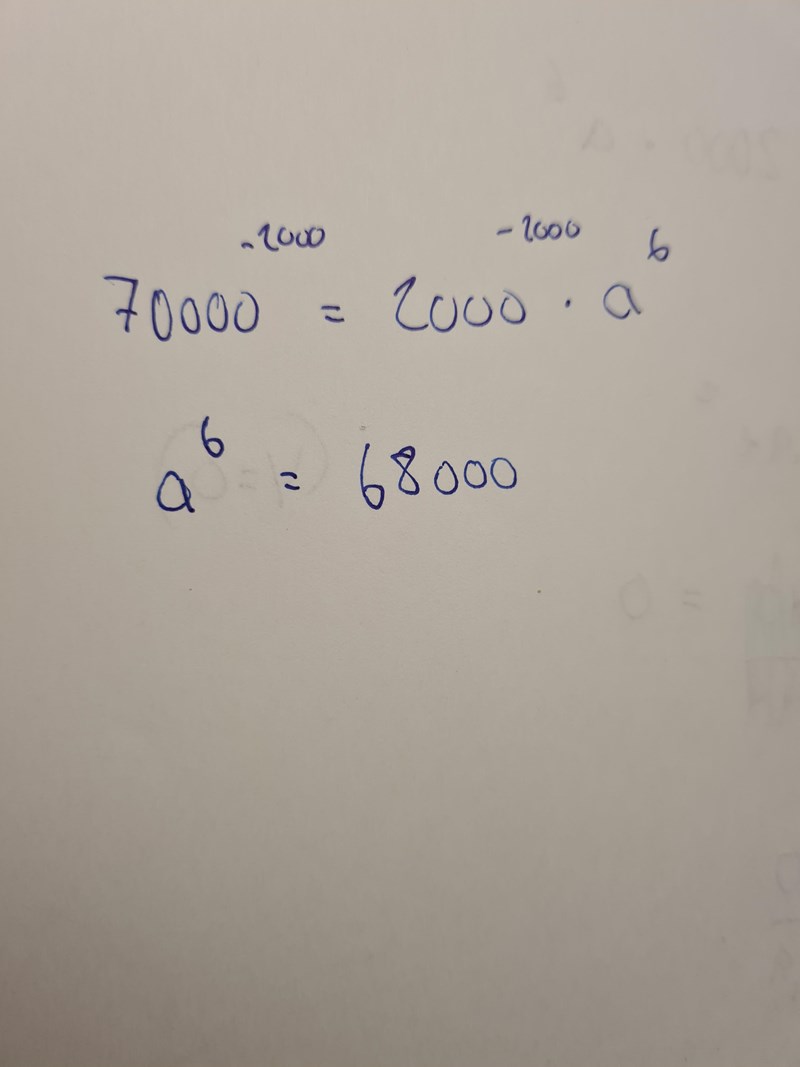 -2000 -2000
70000 = 2000 · a⁶
a⁶ = 68000